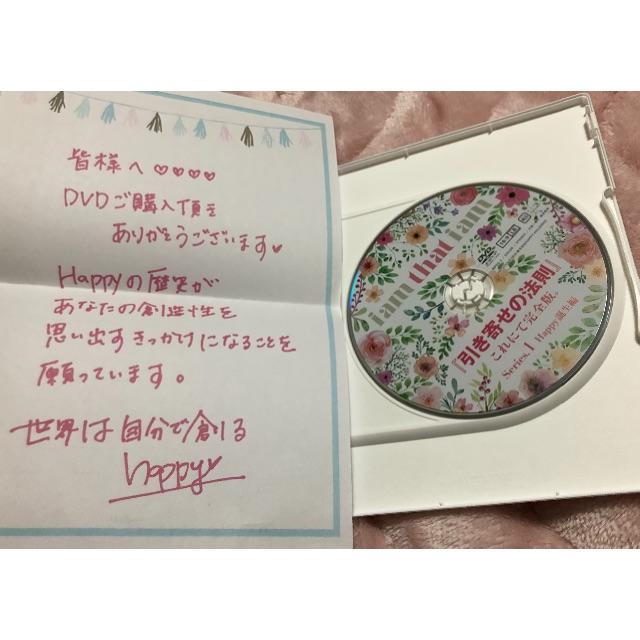 皆様へ♡♡♡♡
DVDご購入頂き
ありがとうございます♥
Happyの歴史が
あなたの創造性を
思い出すきっかけになることを
願っています。
世界は自分で創る
happy♥
i am that i am
『引き寄せの法則』
これにて完全版。
Series.1 Happy誕生編
DVD